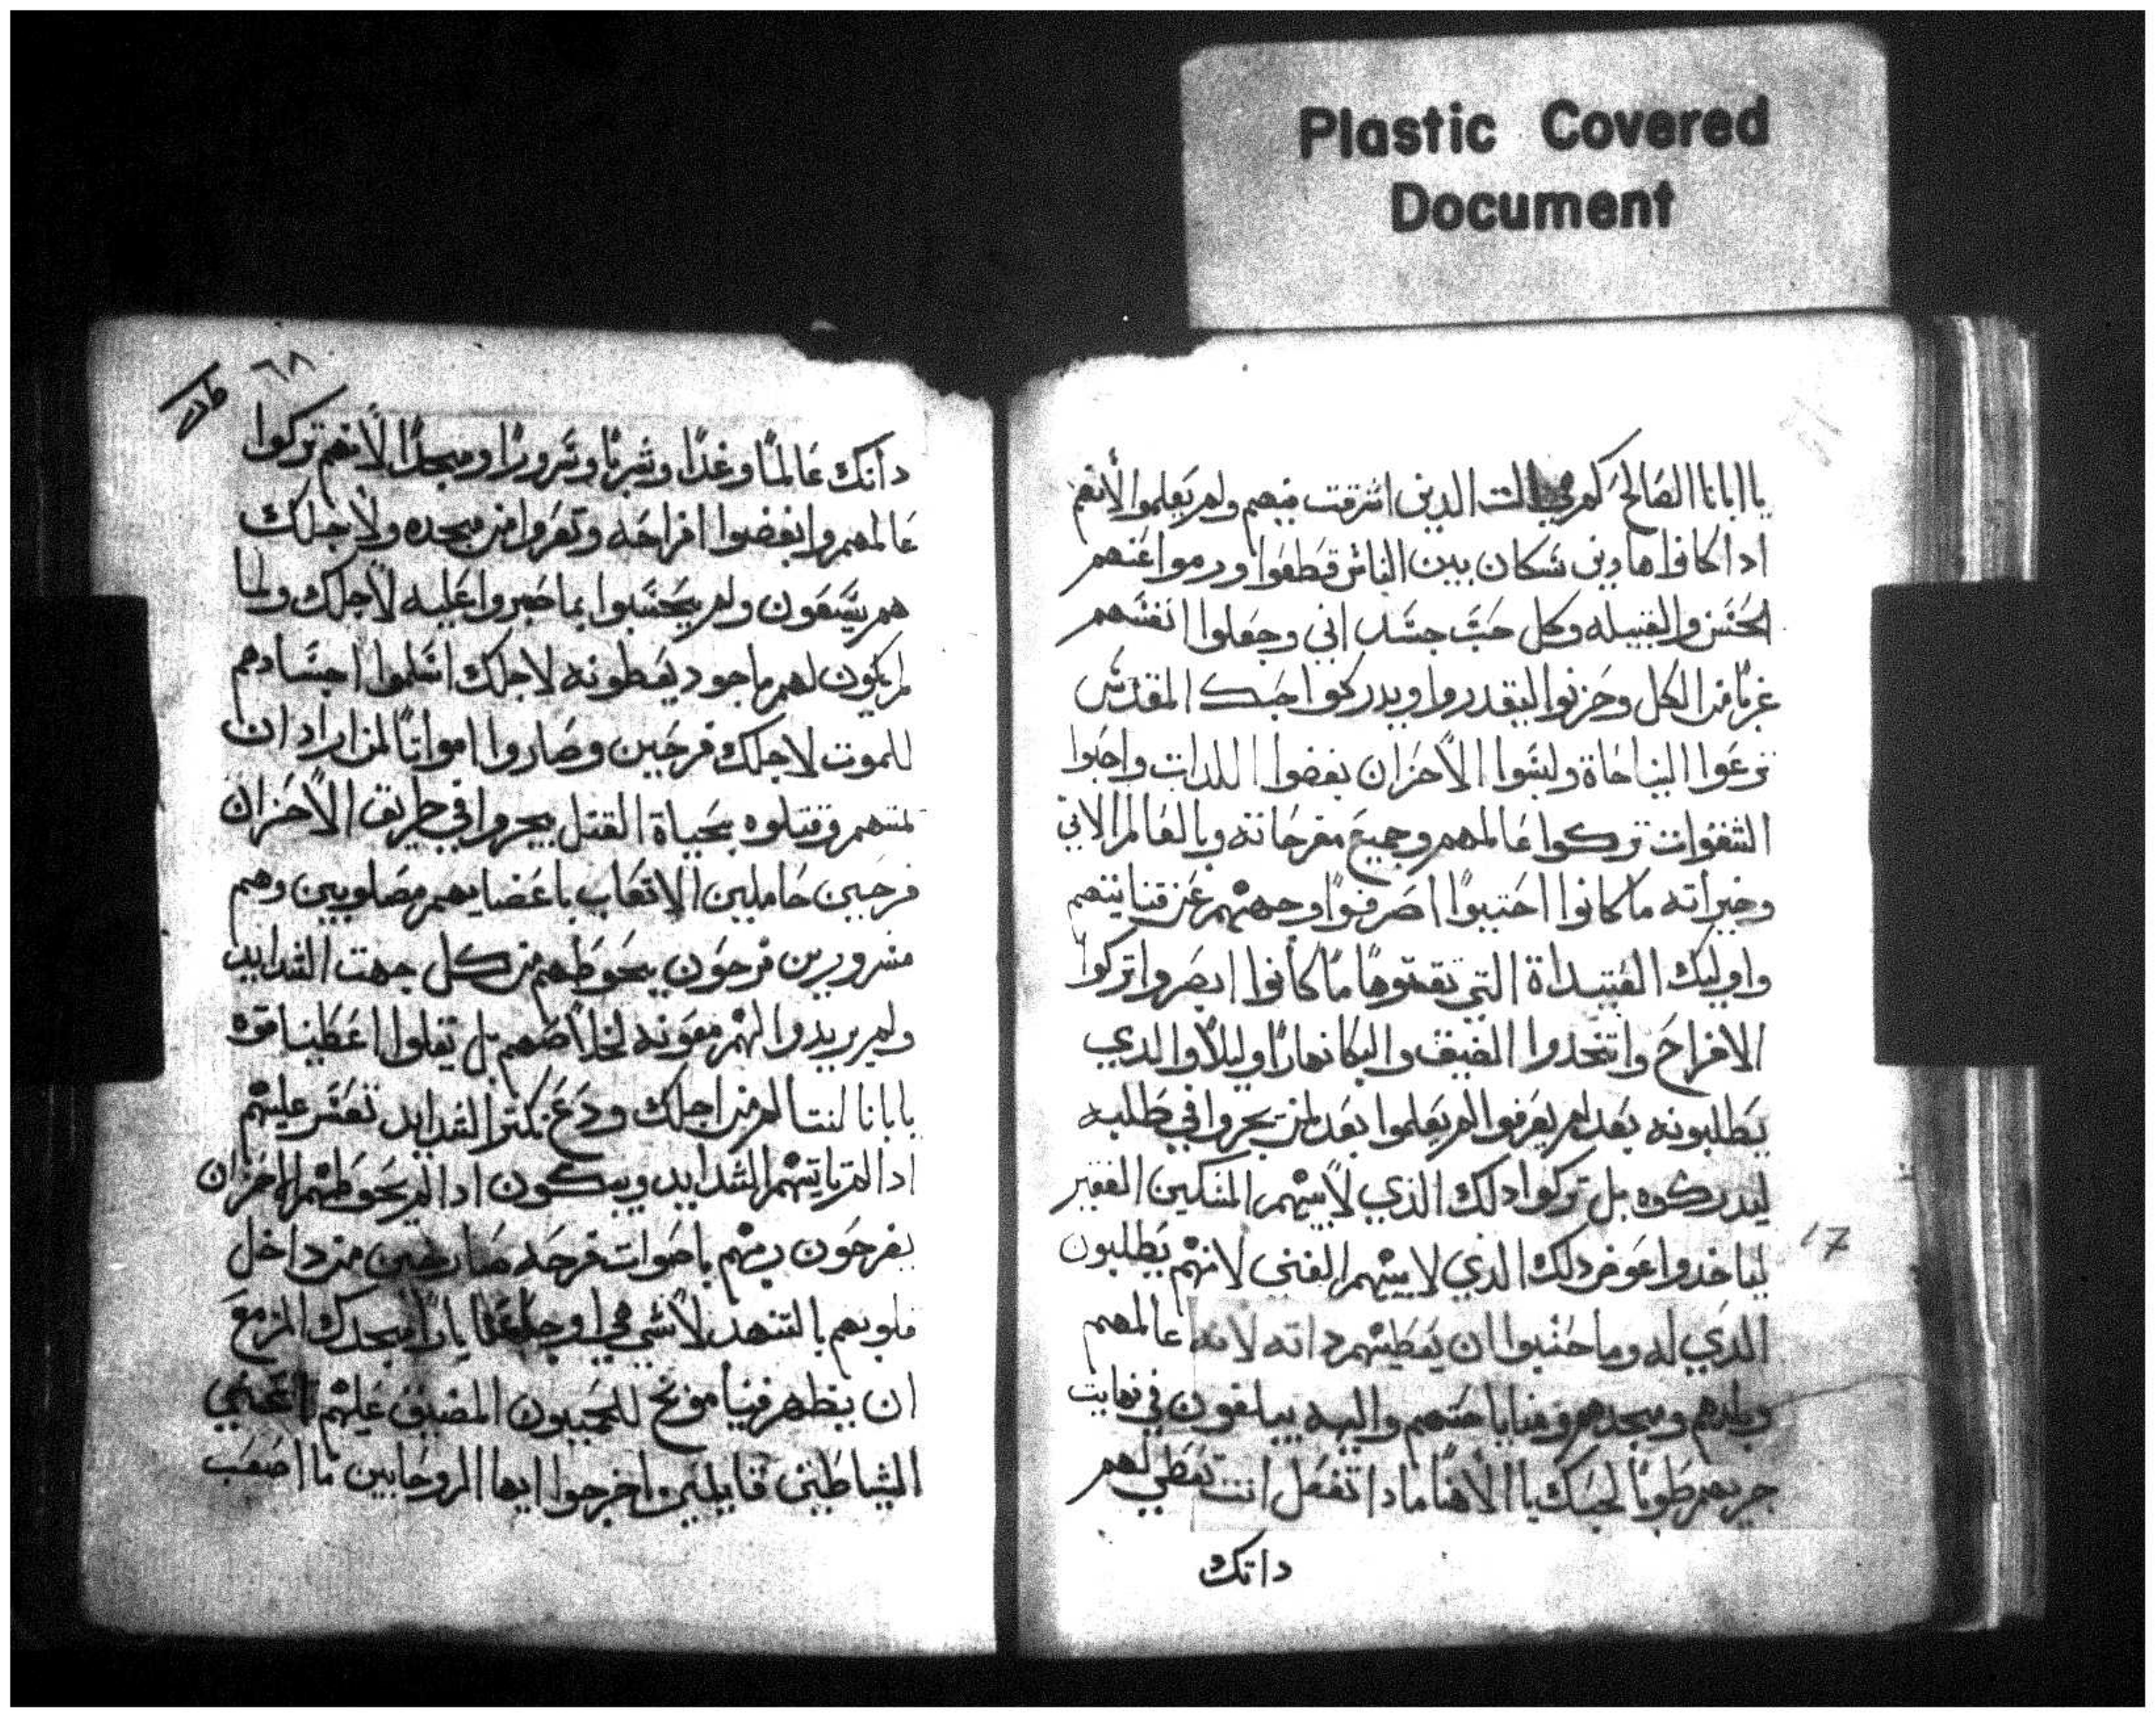 Plastic Covered
Document
يا ابانا الصالح كم هي الذين اشرقت فيهم ولم يعلموا لأنهم
ادا كانوا هادين سكان بين الناس قطعوا ورموا عنهم
الجنس والقبيله وكل حب جسداني وجعلوا انفسهم
غربا من الكل وحزنوا ليقدروا ويدركوا حبك المقدس
نزعوا النياحاة ولبسوا الأحزان بغضوا اللدات واحبوا
الشقوات تركوا عالمهم وجميع مفرحاته وبالعالم الاتي
وخيراته ما كانوا احتسبوا اصرفوا وجههم عن قنايتهم
واوليك القتيداة التي تقتنوها ما كانوا ابصروا تركوا
الافراح واتخدوا الضيق والبكا نهارًا وليلاً والدي
يطلبونه بعد لم يعرفوا لم يعلموا بعد لمن يجروا في طلبه
ليدركوه بل تركوا دلك الذي لأبيهم المسكين الفقير
لياخدوا عوض دلك الدي لابيهم الغني لانهم يطلبون
الدي له وما حسبوا ان يعطيهم داته لانه عالمهم
وبلدهم ومجدهم ومنايا حبهم واليه يبلغون في نهايت
جريهم طوبا لحبك يا الأهنا مادا تفعل انت تعطي لهم
داتك
17
٦٨
دأتك عالمًا وغدًا وشربًا وسرورًا ومجدًا لأنهم تركوا
عالمهم وابغضوا افراحه وتعروا من مجده ولأجلك
هم يسعون ولم يحسبوا بما صبروا عليه لأجلك ولما
لم يكون لهم ماجود يعطونه لاجلك اسلموا اجسادهم
للموت لاجلك فرحين وصاروا امواتًا لمن اراد ان
لمسهم وقتلوه بحياة القتل يجروا في طريق الأحزان
فرحين حاملين الاتعاب باعضايهم مصلوبين وهم
مسرورين فرحون يحوطهم من كل جهت الشدايد
ولم يريدوا لهم معونه لخلاصهم بل تقلوا اعطينا قوه
يا بانا لنتالم من اجلك ودع تكتر الشدايد تعسر عليهم
ادا لم تاتيهم الشدايد ويبكون ادا لم يحوطهم الاحزان
يفرحون بربهم باصوات فرحه صارخين من داخل
قلوبهم بالتنهد لأشي مجدك المزمع
ان يظهر فينا موتح للمحبون المضيق عليهم
الشياطين قايلين اخرجوا ايها الروحانيين ما اصعب